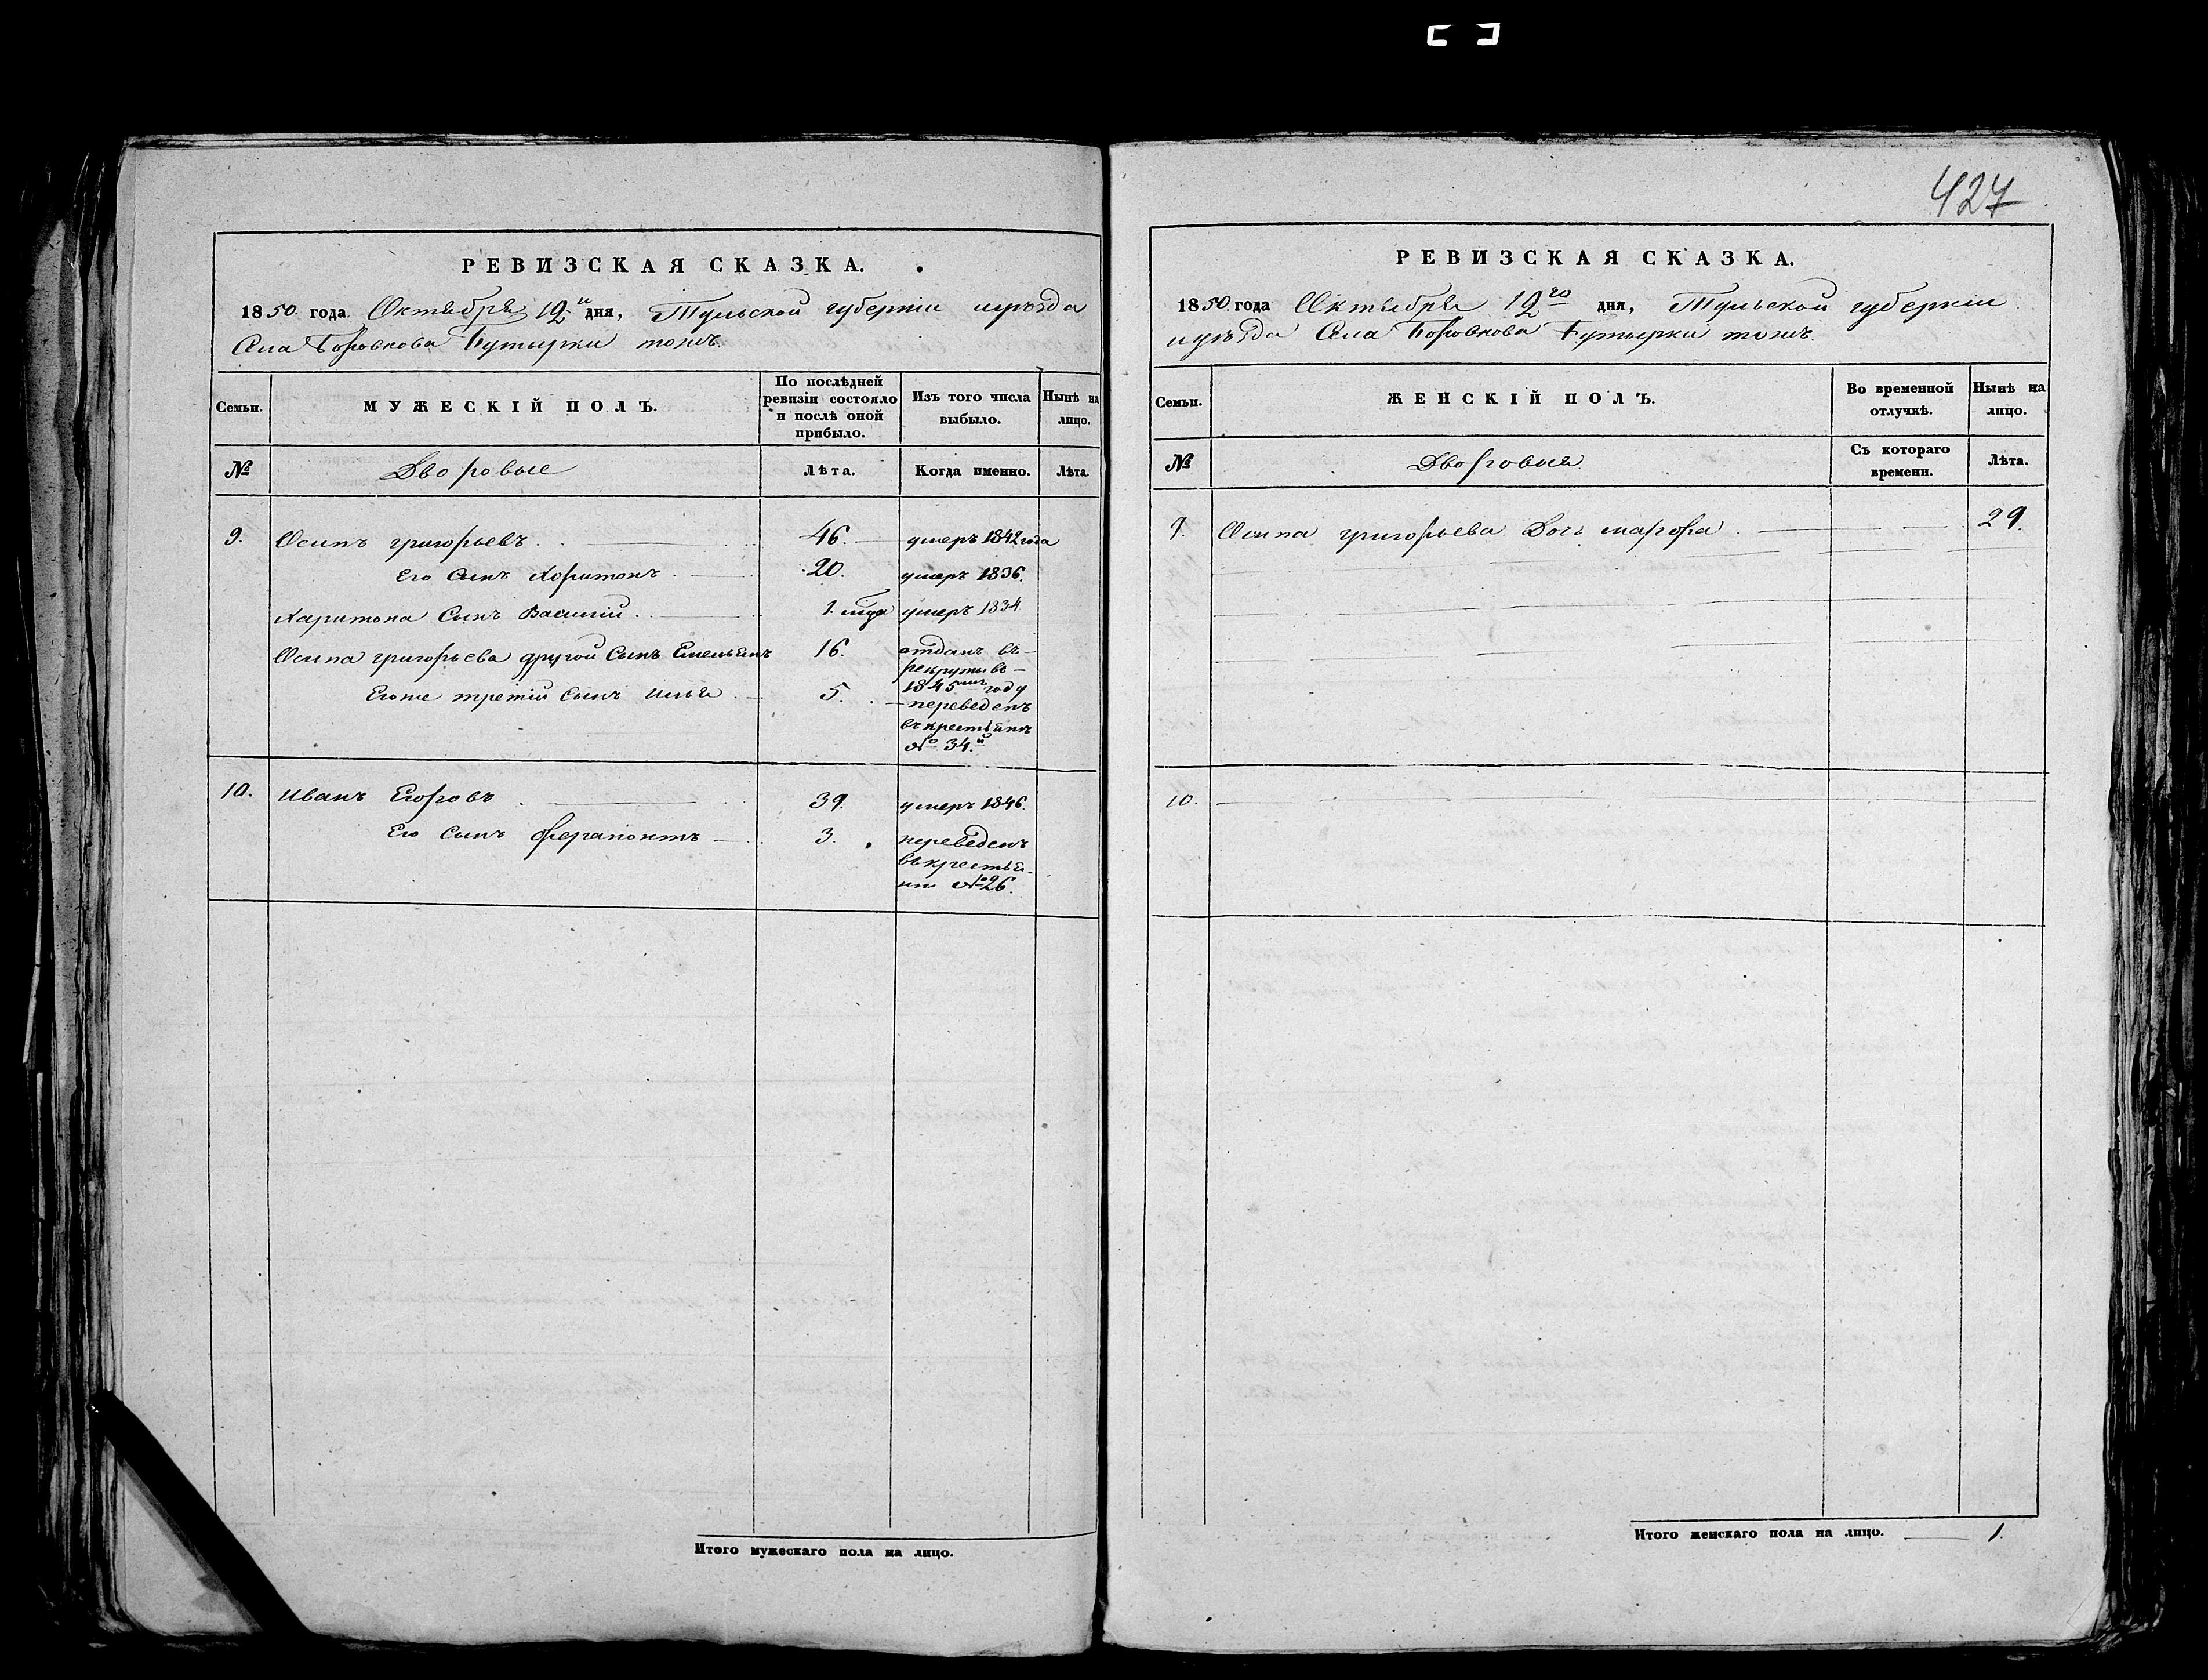 427
РЕВИЗСКАЯ СКАЗКА.
1850 года Октября 19й дня, Тульской губерніи уѣзда
Села Боровкова Бутырки тожъ.
Семьи.
МУЖЕСКІЙ ПОЛЪ.
По послѣдней ревизіи состояло и послѣ оной прибыло.
Изъ того числа выбыло.
Нынѣ на лицо.
№
Дворовые
Лѣта.
Когда именно.
Лѣта.
9. Осипъ григорьевъ. 46. умеръ 1842 года
Его Сынъ Харитонъ 20. умеръ 1836.
Харитона Сынъ Василій 1. года умеръ 1834
Осипа григорьева другой Сынъ Емельянъ 16. отданъ въ
рекруты въ
1845мъ году
Егоже третій сынъ Илья 5. переведенъ
въ крестьянъ
№ 34.й
10. Иванъ Егоровъ 39. умеръ 1846.
Его Сынъ Ферапонтъ 3. переведенъ
въ крестья-
не № 26.
Итого мужескаго пола на лицо.
РЕВИЗСКАЯ СКАЗКА.
1850 года Октября 19го дня, Тульской губерніи
уѣзда Села Боровкова Бутырки тожъ.
Семьи.
ЖЕНСКІЙ ПОЛЪ.
Во временной отлучкѣ.
Нынѣ на лицо.
№
Дворовыя
Съ котораго времени.
Лѣта.
9. Осипа григорьева Дочь 29.
10.
Итого женскаго пола на лицо. 1.